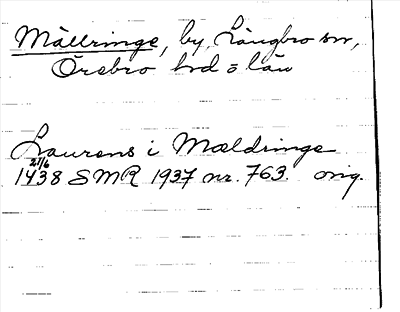 Mällringe, by, Längbro sn,
Örebro hrd o län
Laurens i Mældringe
21/6
1438 SMR 1937 nr. 763. orig.